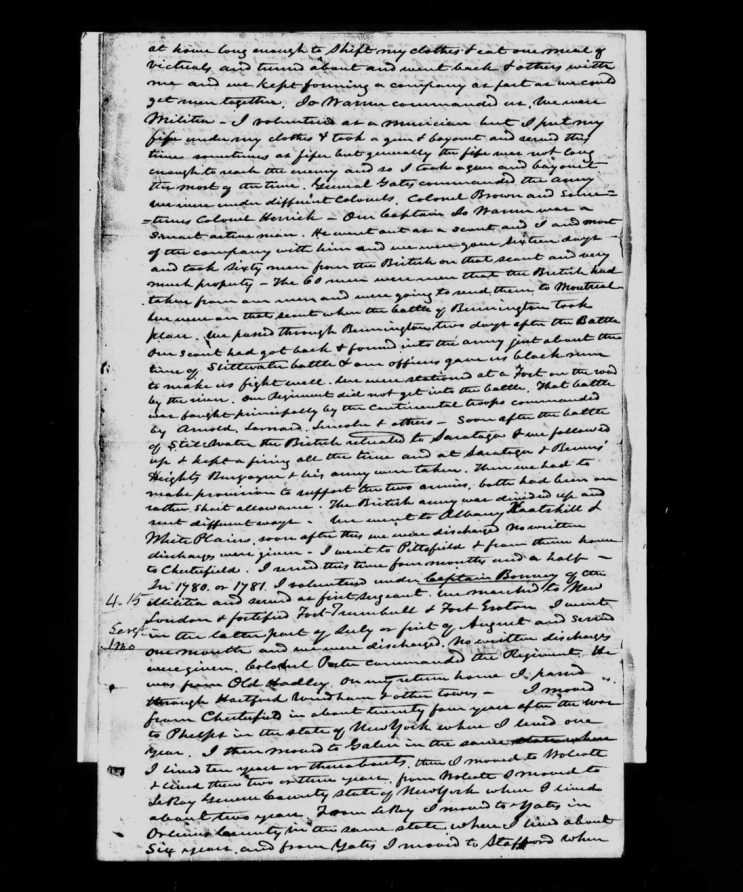 at home long enough to shift my clothes & eat one meal of
victuals, and turned about and went back & others with
me and we kept forming a company as fast as we could
get men together. Jo Warner commanded us. We were
Militia - I volunteered as a musician but I put my
fife under my clothes & took a gun & bayonet and served this
time sometimes as fifer but generally the fife was not long
enough to reach the enemy and so I took a gun and bayonet
the most of the time. General Gates commanded the army
we were under different Colonels, Colonel Brown and Some=
=times Colonel Herrick - Our Captain Jo Warner was a
smart active man. He went out as a scout and I and most
of the company with him and we were gone sixteen days -
and took sixty men from the British on that scout and very
much property - The 60 men were men that the British had
taken from our men and were going to send them to Montreal
We were on that scout when the battle of Bennington took
place. We passed through Bennington two days after the Battle
Our scout had got back & found into the army just about the
time of Stillwater battle & our officers gave us black rum
to make us fight well. We were stationed at a Fort on the road
by the river. Our Regiment did not get into the battle. That battle
was fought principally by the Continental troops commanded
by Arnold, Larnard, Lincoln & others - Soon after the battle
of Stillwater the British retreated to Saratoga & we followed
up & kept a firing all the time and at Saratoga & Bemus'
Heights Burgoyne & his army were taken. Then we had to
make provision to support the two armies, both had been on
rather short allowance. The British army was divided up and
sent different ways - We went to Albany Kaatskill &
White Plains, soon after this we were discharged No written
discharges were given - I went to Pittsfield & from there home
to Chesterfield. I served this time four months and a half -
In 1780. or 1781. I volunteered under Captain Bonney of the
4.-15 Militia and served as first sergeant. We marched to New
London & fortified Fort Trumbull & Fort Groton I went
Sergt in the latter part of July or first of August and served
1 mo one month and we were discharged. No written discharges
were given. Colonel Porter commanded the Regiment. He
was from Old Hadley. On my return home I passed
through Hartford Windham & other towns - I moved
from Chesterfield in about twenty four years after the war
to Phelps in the state of New York where I lived one
year. I then moved to Galen in the same state where
I lived ten years or thereabouts, then I moved to Wolcott
& lived there two or three years, from Wolcott I moved to
LeRoy Genesee County State of New York where I lived
about two years. From LeRoy I moved to Yates in
Orleans County, in the same state, where I lived about
Six years, and from Yates I moved to Stafford when